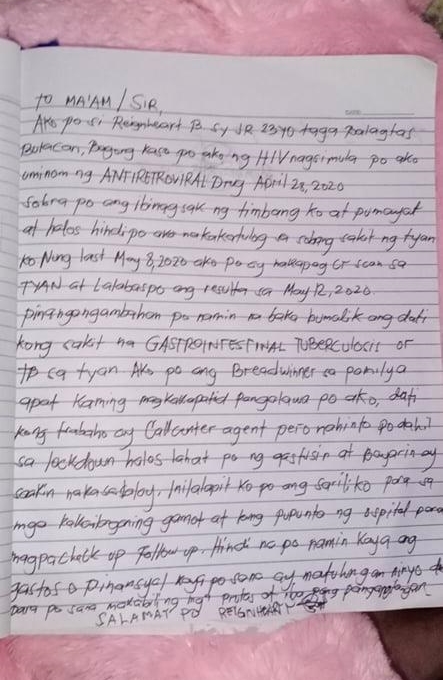 TO MA'AM / SIR,
DATE:
Ako po si Reignheart B. Sy JR 23 yo taga Balagtas
Bulacan, Bagong kaso po ako ng HIV nagsimula po ako
uminom ng ANTIRETROVIRAL Drug April 28, 2020
Sobra po ang ibinagsak ng timbang ko at pumayat
at halos hindi po ako nakakatulog sa sobang sakit ng tyan
ko Nung last May 8, 2020 ako po ay nakapag CT scan sa
TYAN at Lalabas po ang resulta sa May 12, 2020.
pinangangambahan po namin na baka bumalik ang dati
kong sakit na GASTROINTESTINAL TUBERCULOSIS or
TB sa tyan Ako po ang Breadwinner sa pamilya
apat kaming magkakapatid pangalawa po ako, dati
kong trabaho ay Callcenter agent pero nahinto po dahil
sa lockdown halos lahat po ng gastusin at Bayarin ay
saakin nakasalalay. Inilalapit ko po ang sarili ko para sa
mga kakailanganing gamot at tuwing pupunta ng ospital para
magpacheck up Follow up. Hindi na po namin kaya ang
gastos o pinansyal kaya po sana ay matulungan ninyo
para po sana makabili ng mga prutas at iba pang pangangailangan
SALAMAT PO REIGNHEART